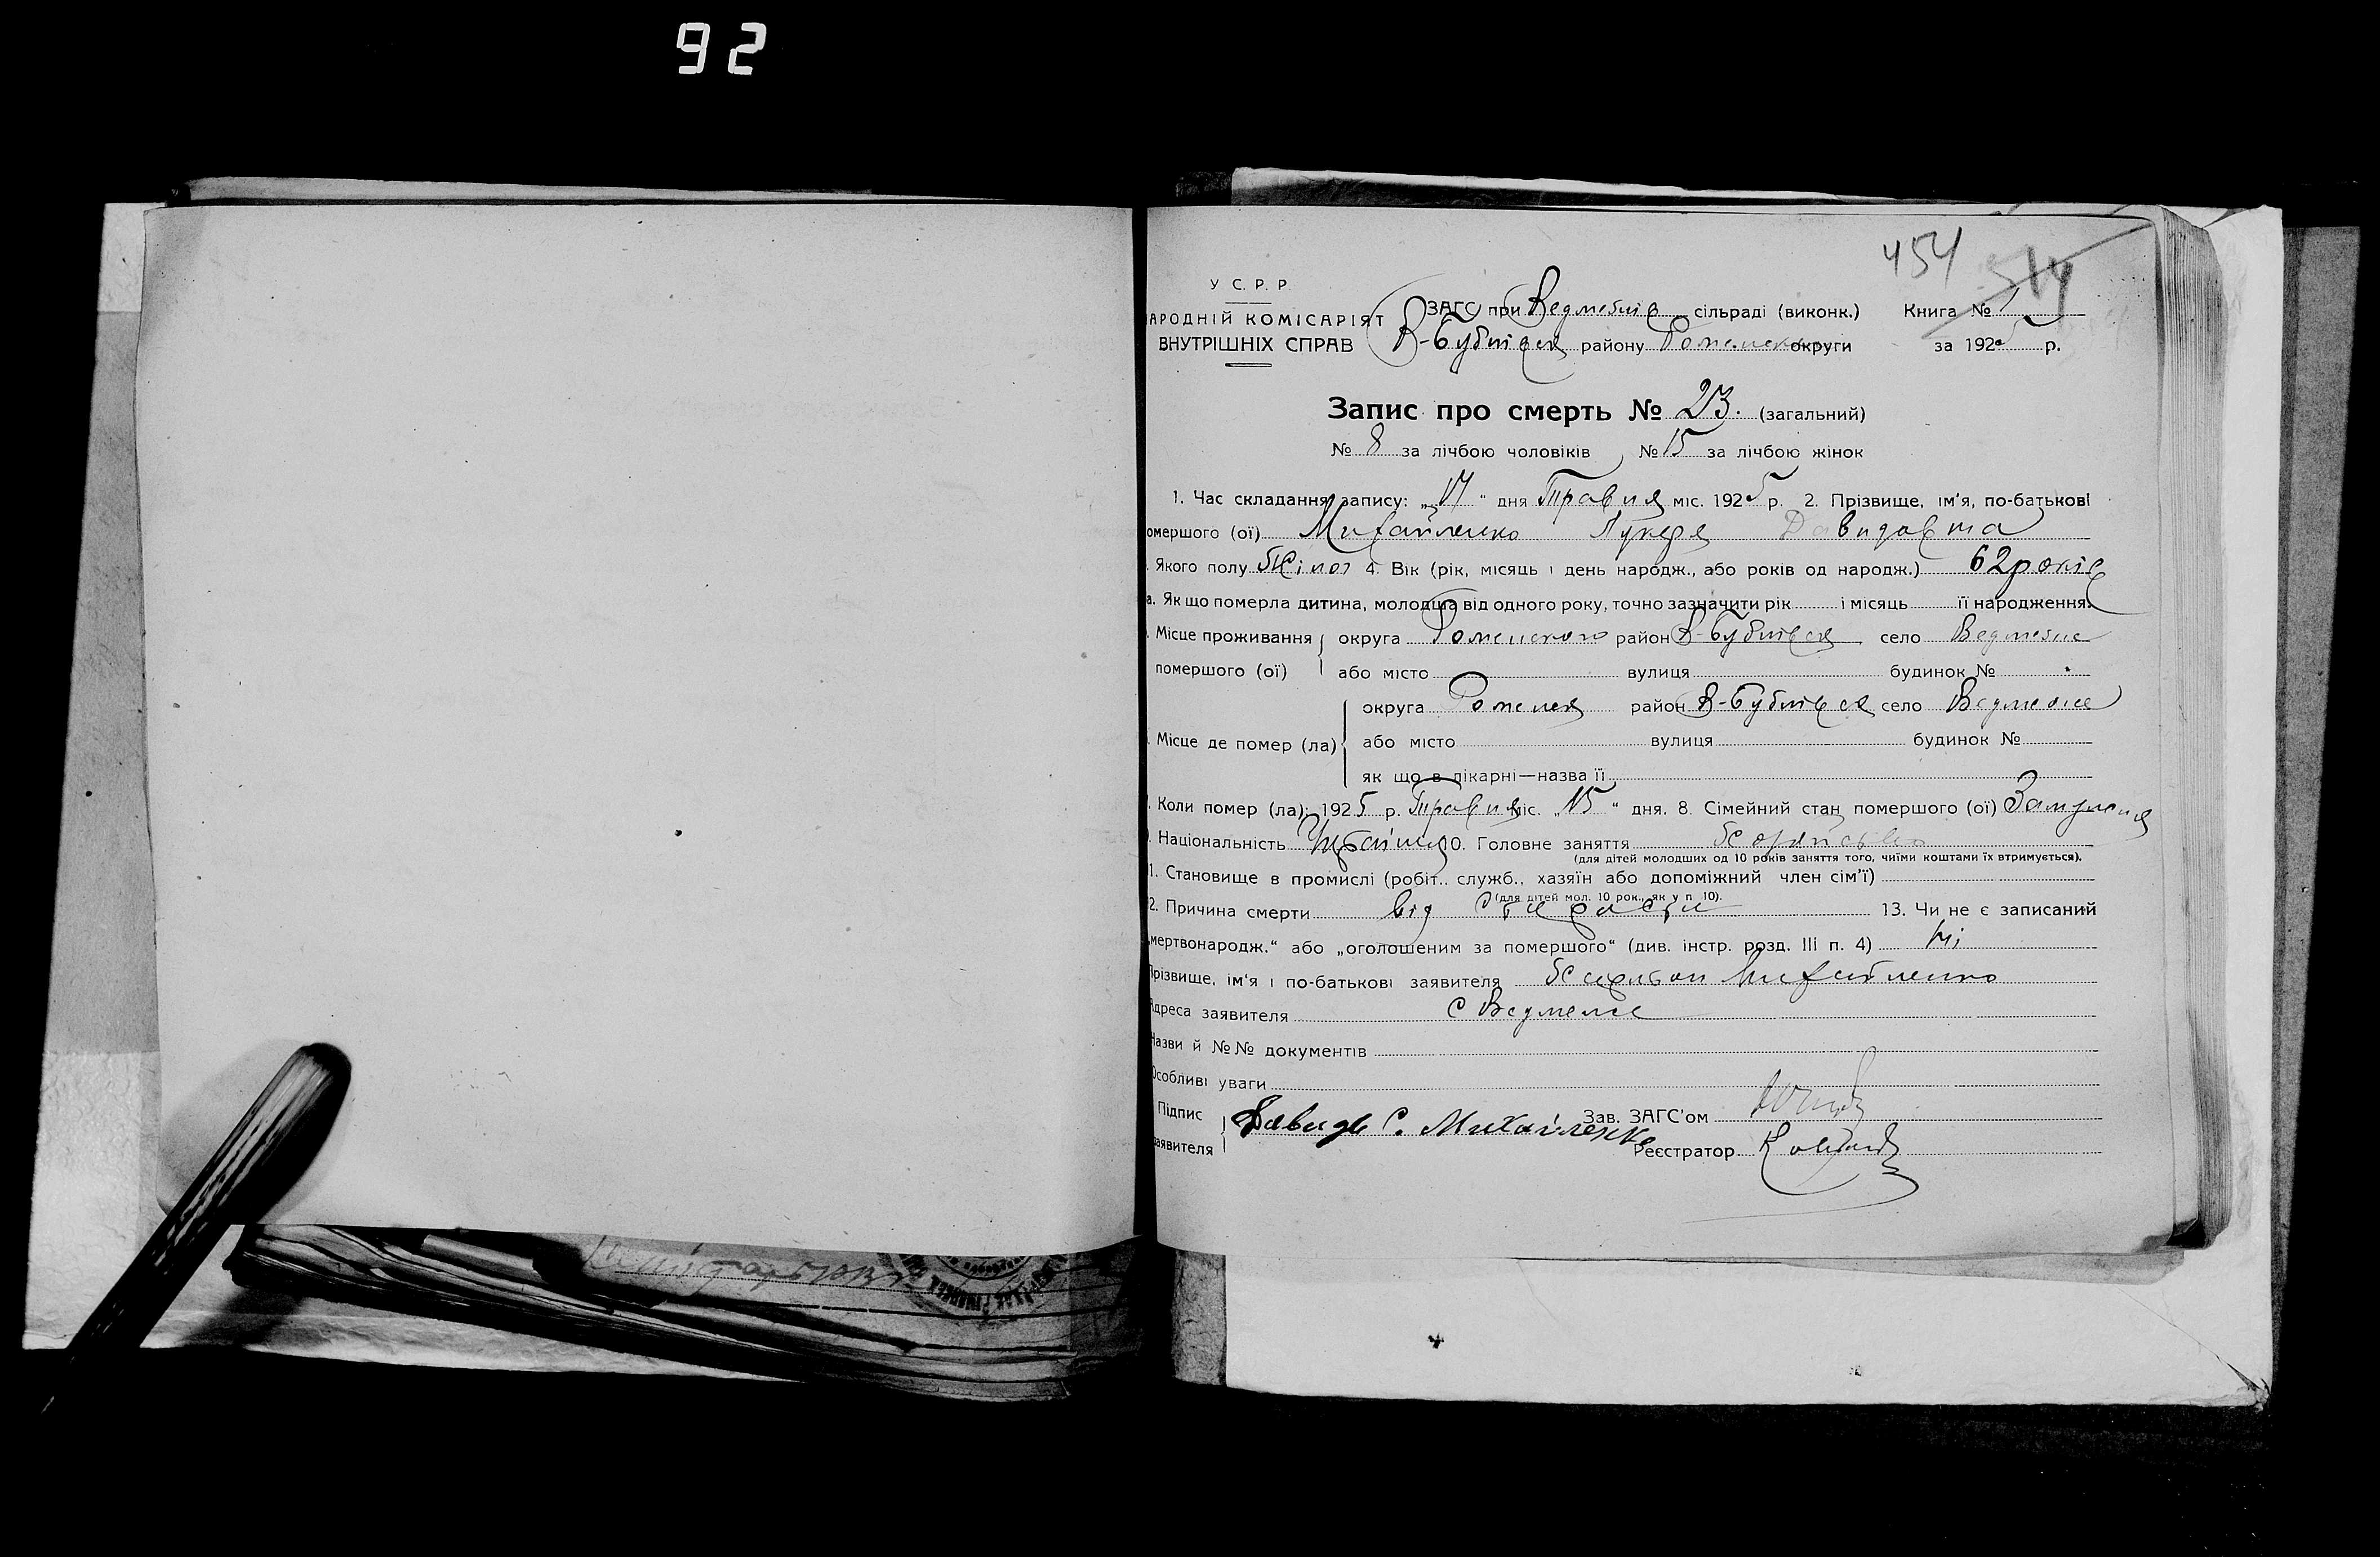 92
454 514
У С. Р. Р.
АРОДНІЙ КОМІСАРІЯТ
ВНУТРІШНІХ СПРАВ
ЗАГС при Ведмежів сільраді (виконк.) Книга № 1
В-Бубнівся району Роменської округи за 1925 р.
Запис про смерть № 23. (загальний)
№ 8 за лічбою чоловіків № 15 за лічбою жінок
1. Час складання запису: „17“ дня Травня міс. 1925 р. 2. Прізвище, ім'я, по-батькові
омершого (ої) Михайленко Лукеря Давидовна
. Якого полу Жіноч 4. Вік (рік, місяць і день народж., або років од народж.) 62 років
а. Як що померла дитина, молодша від одного року, точно зазначити рік і місяць її народження.
. Місце проживання округа Роменского район В-Бубнівся село Ведмеже
помершого (ої) або місто вулиця будинок №
округа Роменся район В-Бубнівся село Ведмеже
. Місце де помер (ла) або місто вулиця будинок №
як що в лікарні—назва її
. Коли помер (ла): 1925 р. Травня міс. „15“ дня. 8. Сімейний стан помершого (ої) Замужня
. Національність 10. Головне заняття
(для дітей молодших од 10 років заняття того, чиїми коштами їх втримується).
1. Становище в промислі (робіт.. служб., хазяїн або допоміжний член сім'ї)
(для дітей мол. 10 рок., як у п 10).
2. Причина смерти від старости 13. Чи не є записаний
мертвонародж.“ або „оголошеним за помершого“ (див. інстр. розд. III п. 4) Ні
Прізвище, ім'я і по-батькові заявителя Михайленко
Адреса заявителя с Ведмеже
Назви й №№ документів
Особливі уваги
Підпис
заявителя Давидъ С. Михайленко
Зав. ЗАГС'ом
Реєстратор